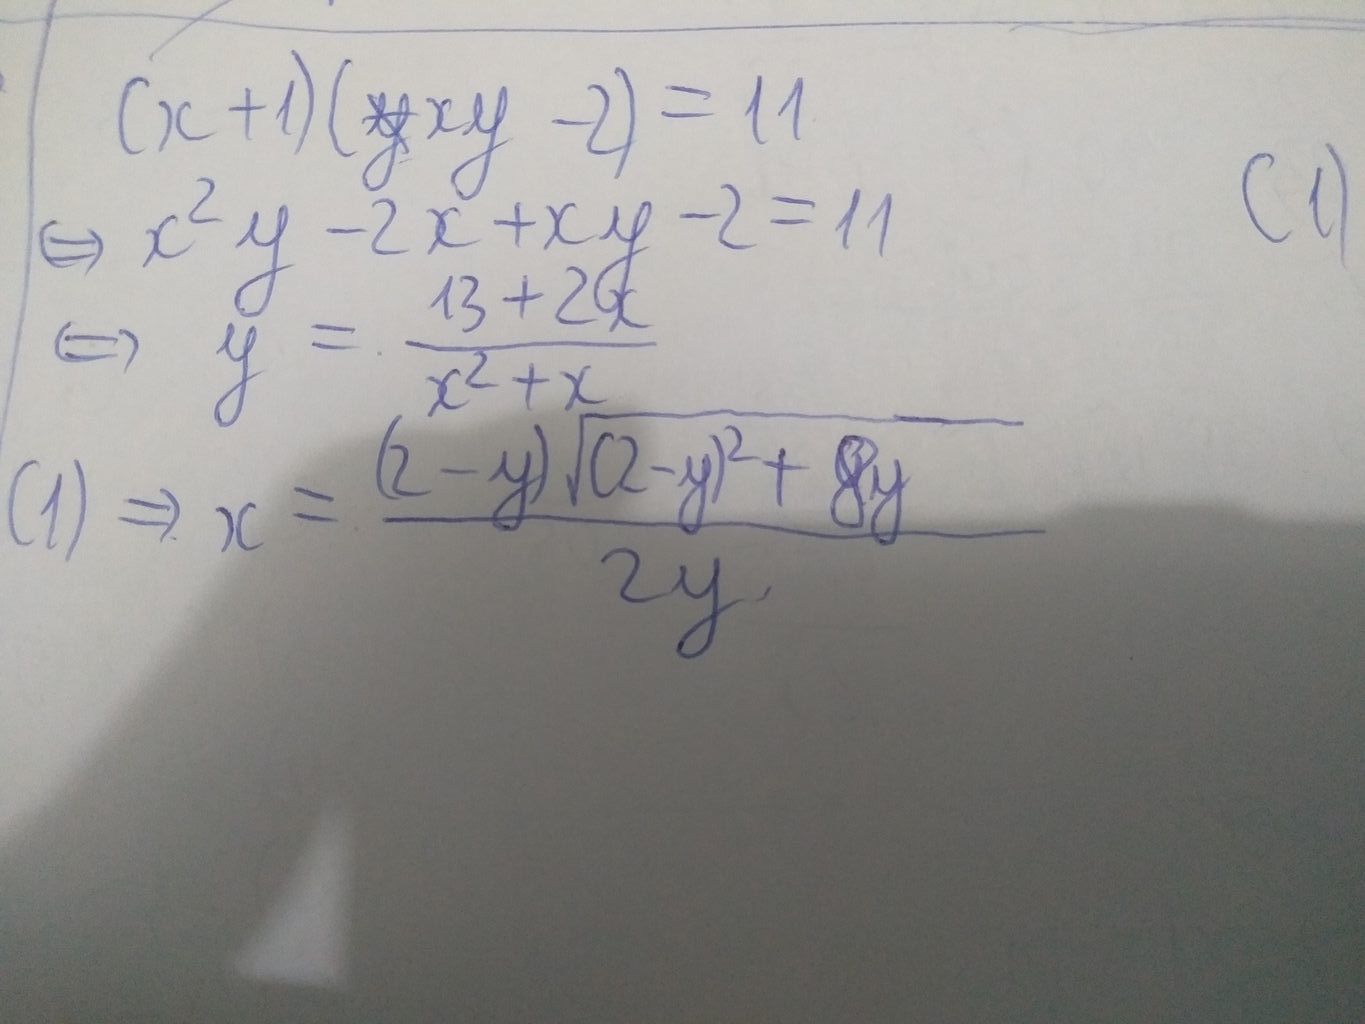 (x+1)(xy-2)=11
⇔ x²y-2x+xy-2=11 (1)
⇔ y = (13+2x)/(x²+x)
(1) ⇒ x = ((2-y)√((2-y)²+8y))/(2y)